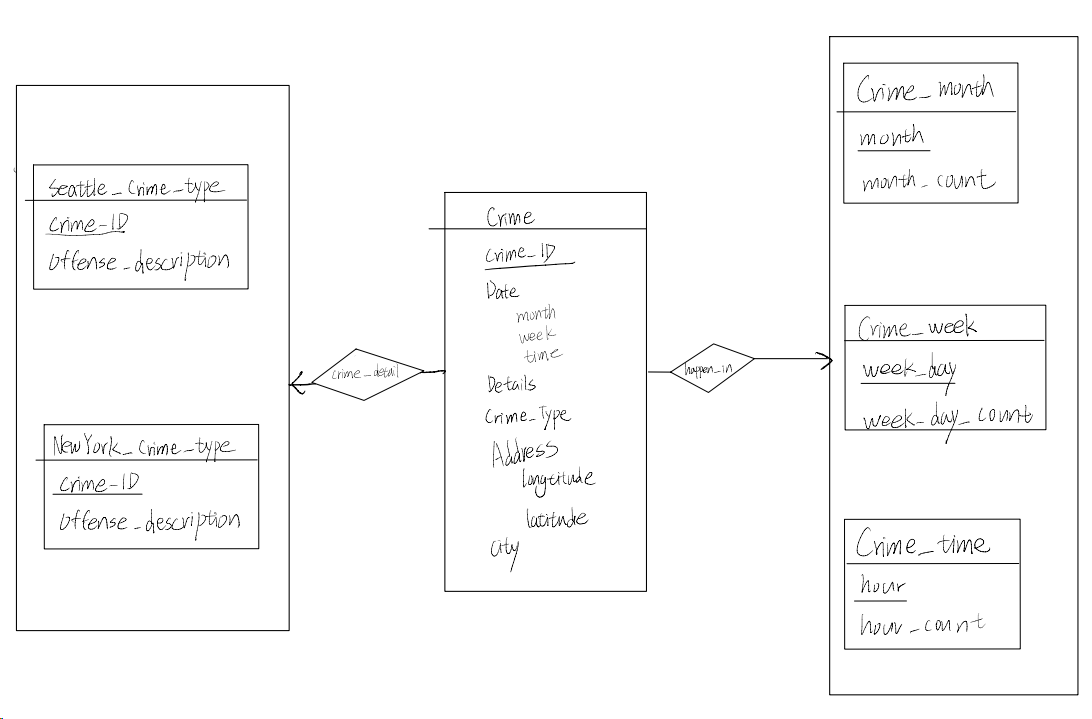 Seattle_Crime_type
Crime_ID
Offense_description
NewYork_Crime_type
Crime_ID
Offense_description
crime_detail
Crime
Crime_ID
Date
month
week
time
Details
Crime_Type
Address
longtitude
latitude
City
happen_in
Crime_month
month
month_count
Crime_week
week_day
week_day_count
Crime_time
hour
hour_count